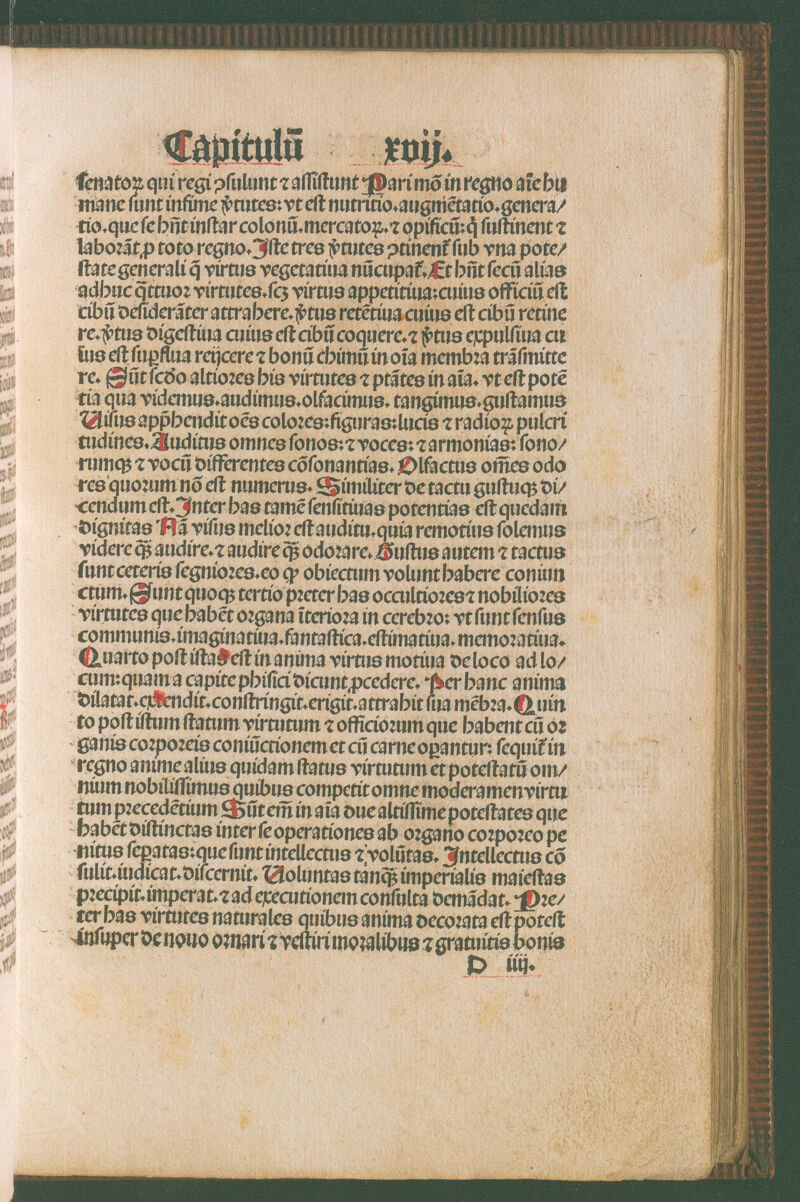 Capitulū xvij.
senatoꝝ qui regi ↄsulunt ⁊ assistunt Pari mō in regno aīe hu
mane sunt infime v̾tutes: vt est nutritio.augmētatio.genera/
tio.que se hn̄t instar colonū.mercatoꝝ.⁊ opificū:q̄ sustinent ⁊
laborāt,ꝓ toto regno.Iste tres v̾tutes ↄtinent᷑ sub vna pote/
state generali q̄ virtus vegetatiua nūcupat᷑.Et hn̄t secū alias
adhuc q̄ttuor virtutes.scꝫ virtus appetitiua:cuius officiū est
cibū desiderāter attrahere.v̾tus retētiua cuius est cibū retine
re.v̾tus digestiua cuius est cibū coquere.⁊ v̾tus expulsiua cu
ius est suꝑflua reijcere ⁊ bonū chimū in oīa membra trāsmitte
re. Sūt scd̄o altiores his virtutes ⁊ ptātes in aīa. vt est potē
tia qua videmus.audimus.olfacimus. tangimus.gustamus
Uisus app̄hendit oēs colores:figuras:lucis ⁊ radioꝝ pulcri
tudines.Auditus omnes sonos:⁊ voces: ⁊ armonias: sono/
rumqꝫ ⁊ vocū differentes cōsonantias. Olfactus om̄es odo
res quorum nō est numerus. Similiter de tactu gustuqꝫ di/
cendum est.Inter has tamē sensitiuas potentias est quedam
dignitas Nā visus melior est auditu.quia remotius solemus
videre qꝫ̄ audire.⁊ audire qꝫ̄ odorare.Gustus autem ⁊ tactus
sunt ceteris segniores.eo ꝙ obiectum volunt habere coniun
ctum.Sunt quoqꝫ tertio preter has occultiores ⁊ nobiliores
virtutes que habēt organa īteriora in cerebro: vt sunt sensus
communis.imaginatiua.fantastica.estimatiua.memoratiua.
Quarto post istas est in anima virtus motiua de loco ad lo/
cum:quam a capite phisici dicunt ꝓcedere. Per hanc anima
dilatat.extendit.constringit.erigit.attrahit sua mēbra.Quin
to post istum statum virtutum ⁊ officiorum que habent cū or
ganis corporeis coniūctionem et cū carne oꝑantur: sequit᷑ in
regno anime alius quidam status virtutum et potestatū om/
nium nobilissimus quibus competit omne moderamen virtu
tum precedētium Sūt em̄ in aīa due altissime potestates que
habēt distinctas inter se operationes ab organo corporeo pe
nitus seꝑatas:que sunt intellectus ⁊ volūtas. Intellectus cō
sulit.iudicat.discernit. Uoluntas tanqꝫ̄ imperialis maiestas
precipit.imperat.⁊ ad executionem consulta demādat. Pre/
ter has virtutes naturales quibus anima decorata est potest
insuper de nouo ornari ⁊ vestiri moralibus ⁊ gratuitis bonis
D iiij.